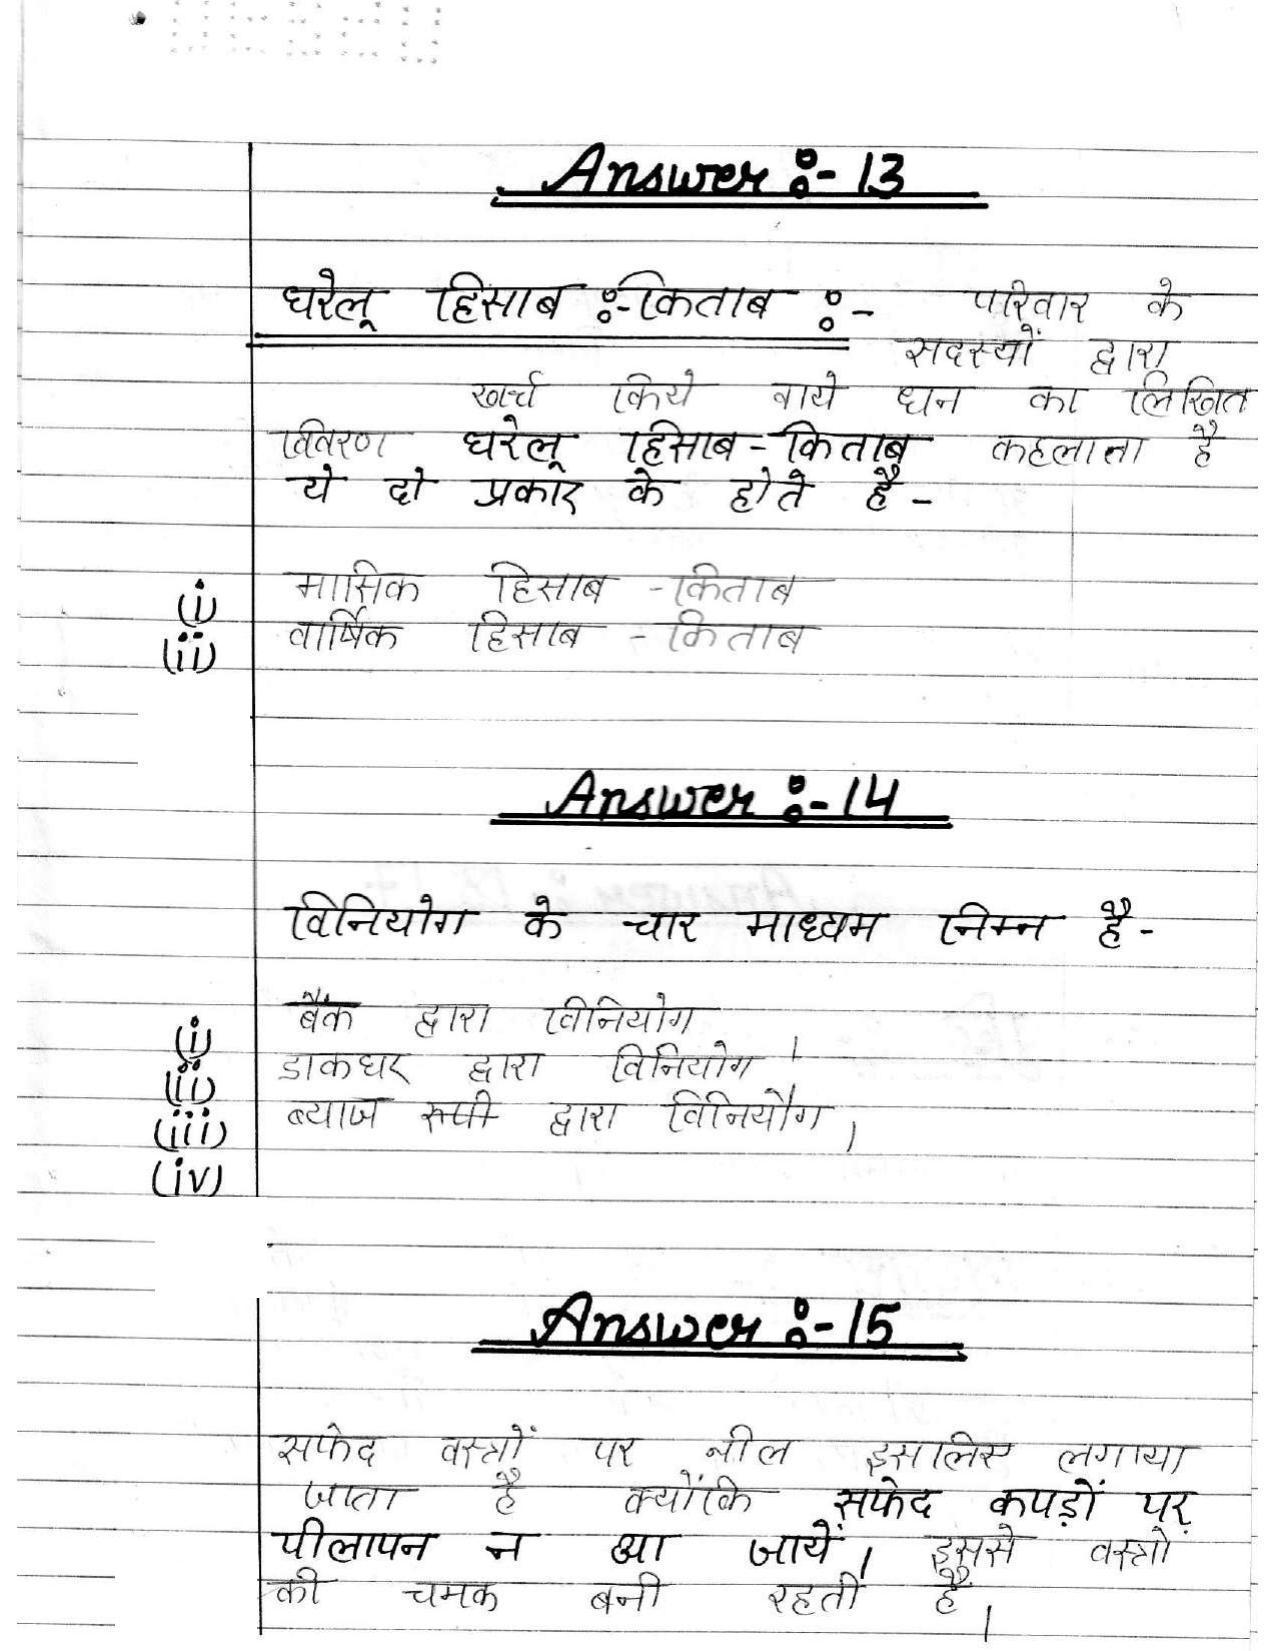 Answer :- 13
घरेलू हिसाब :-किताब :- परिवार के
सदस्यों द्वारा
खर्च किये गये धन का लिखित
विवरण घरेलू हिसाब - किताब कहलाता है
ये दो प्रकार के होते है -
(i) मासिक हिसाब - किताब
(ii) वार्षिक हिसाब - किताब
Answer :- 14
विनियोग के चार माध्यम निम्न है -
(i) बैंक द्वारा विनियोग
(ii) डाकघर द्वारा विनियोग ।
(iii) ब्याज द्वारा विनियौग ।
(iv)
Answer :- 15
सफेद वस्त्रों पर नील इसलिए लगाया
जाता है क्योंकि सफेद कपड़ों पर
पीलापन न आ जायें, इससे वस्त्रो
की चमक बनी रहती है ।